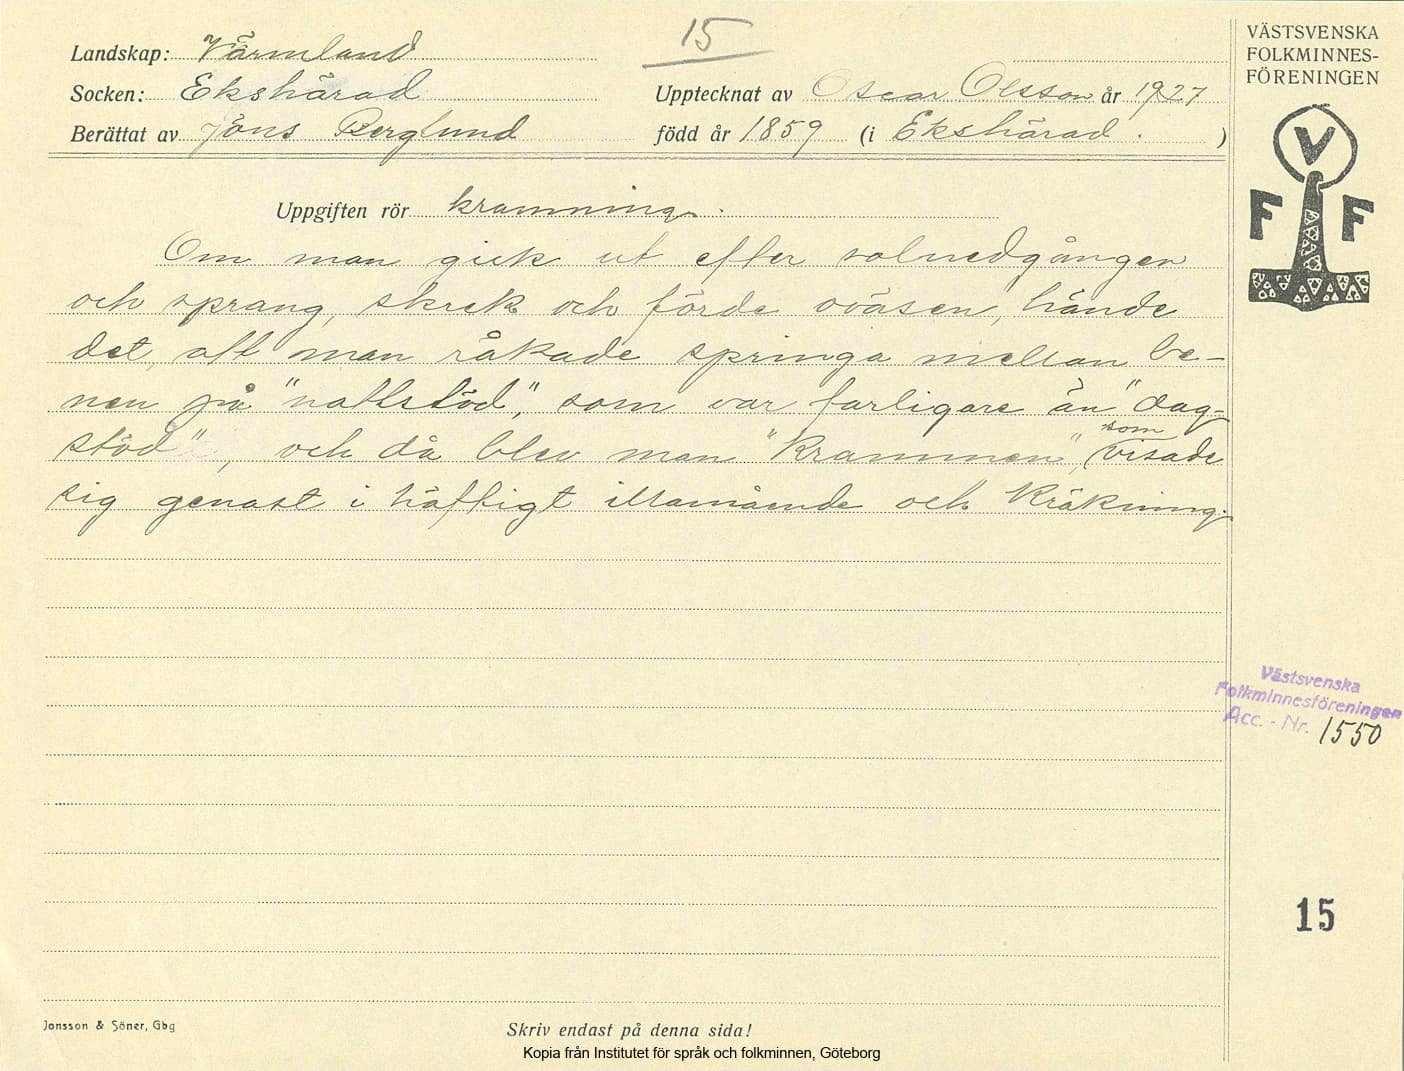 15
Landskap: Värmland
Socken: Ekshärad
Upptecknat av Oscar Olsson år 1927
Berättat av Jöns Berglund
född år 1859 (i Ekshärad. )
VÄSTSVENSKA
FOLKMINNES-
FÖRENINGEN
V
F F
Uppgiften rör kramning.
Om man gick ut efter solnedgången
och sprang, skrek och förde oväsen, hände
det, att man råkade springa mellan be-
nen på "nattstöd", som var farligare än "dag-
stöd", och då blev man "krammen", som visade
sig genast i häftigt illamående och kräkning.
Västsvenska
Folkminnesföreningen
Acc. - Nr. 1550
15
Jonsson & Söner, Gbg
Skriv endast på denna sida!
Kopia från Institutet för språk och folkminnen, Göteborg